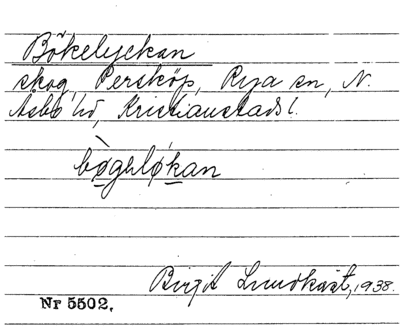 Bökelyckan
skog, Persköp, Rya sn, N.
Åsbo hd, Kristianstads l.
bògeløkan
Birgit Lundkvist, 1938.
Nr 5502.